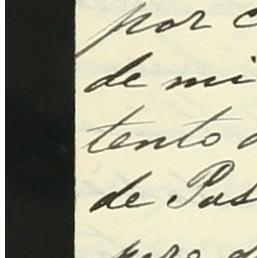 por c
de mi
tento d
de Pas
para d